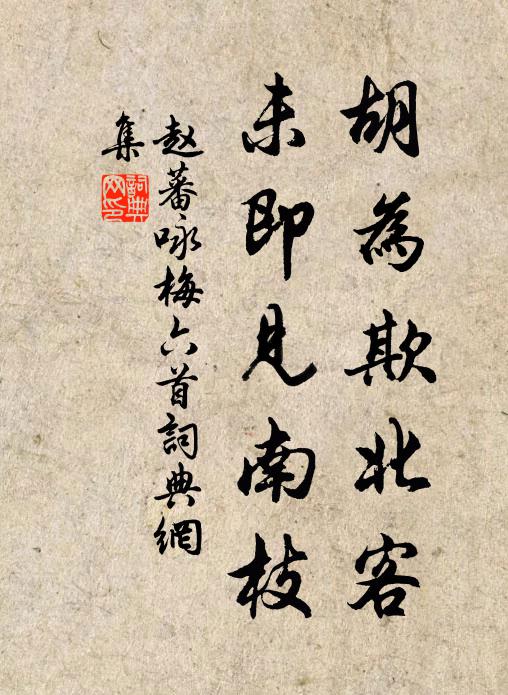 胡為欺北客
未即見南枝
赵蕃咏梅六首詞典網
集
詞典网印